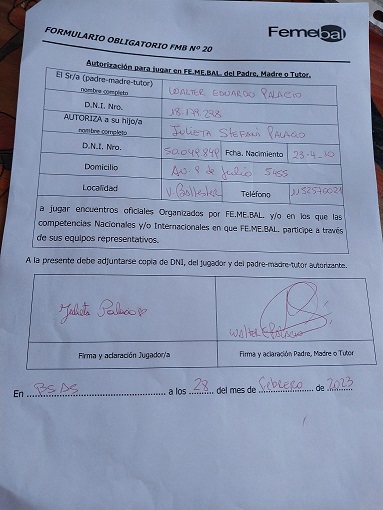 FORMULARIO OBLIGATORIO FMB Nº 20
Femebal
Autorización para jugar en FE.ME.BAL. del Padre, Madre o Tutor.
El Sr/a (padre-madre-tutor) nombre completo WALTER EDUARDO PALACIO
D.N.I. Nro. 18.179.298
AUTORIZA a su hijo/a nombre completo JULIETA STEFANI PALACIO
D.N.I. Nro. 50.049.849 Fcha. Nacimiento 23-4-10
Domicilio AV. 8 de Julio 5455
Localidad V. Ballester Teléfono
a jugar encuentros oficiales Organizados por FE.ME.BAL. y/o en los que las
competencias Nacionales y/o Internacionales en que FE.ME.BAL. participe a través
de sus equipos representativos.
A la presente debe adjuntarse copia de DNI, del jugador y del padre-madre-tutor autorizante.
Julieta Palacio
WALTER E PALACIO
Firma y aclaración Jugador/a Firma y aclaración Padre, Madre o Tutor
En BS AS a los 28 del mes de febrero de 2023